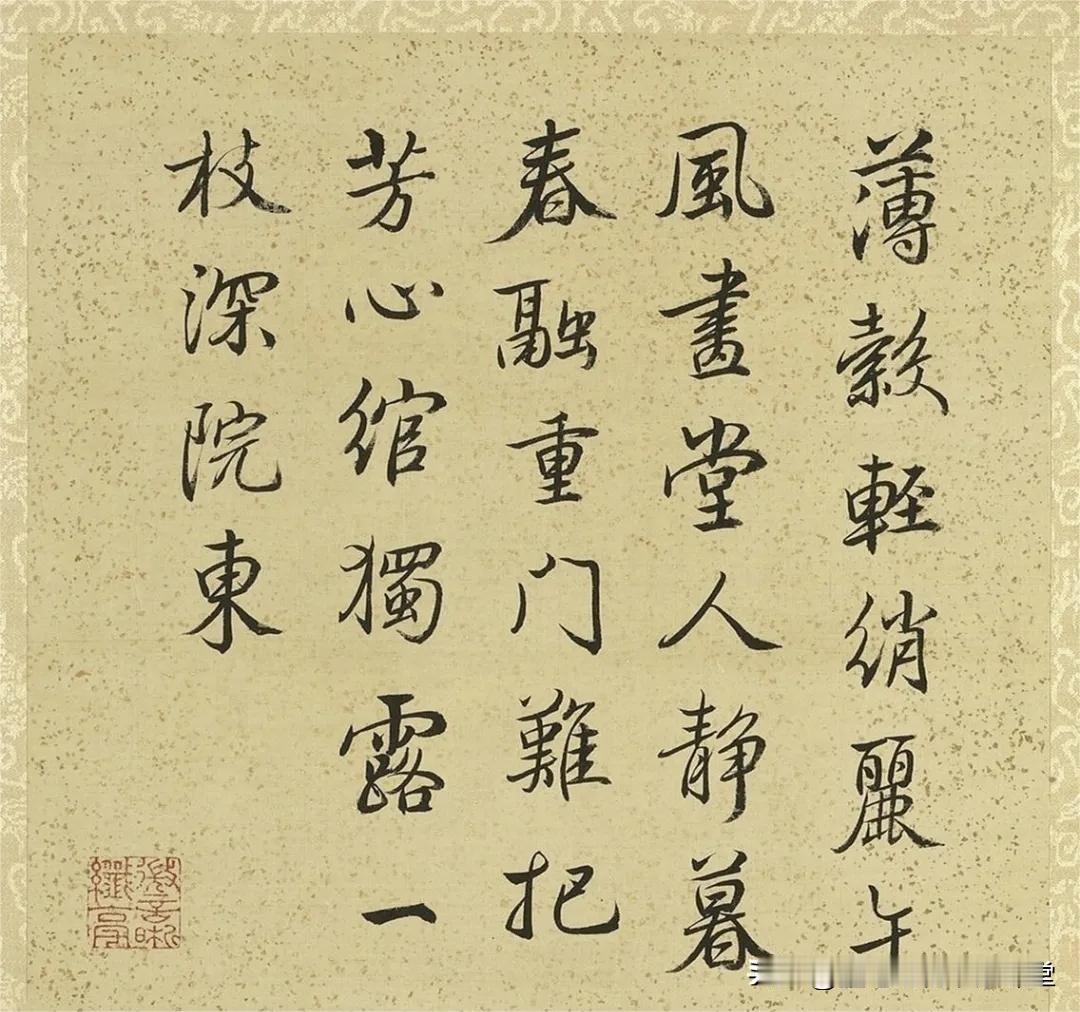 薄縠輕綃麗午
風畫堂人静暮
春融重门難把
芳心綰獨露一
枝深院東